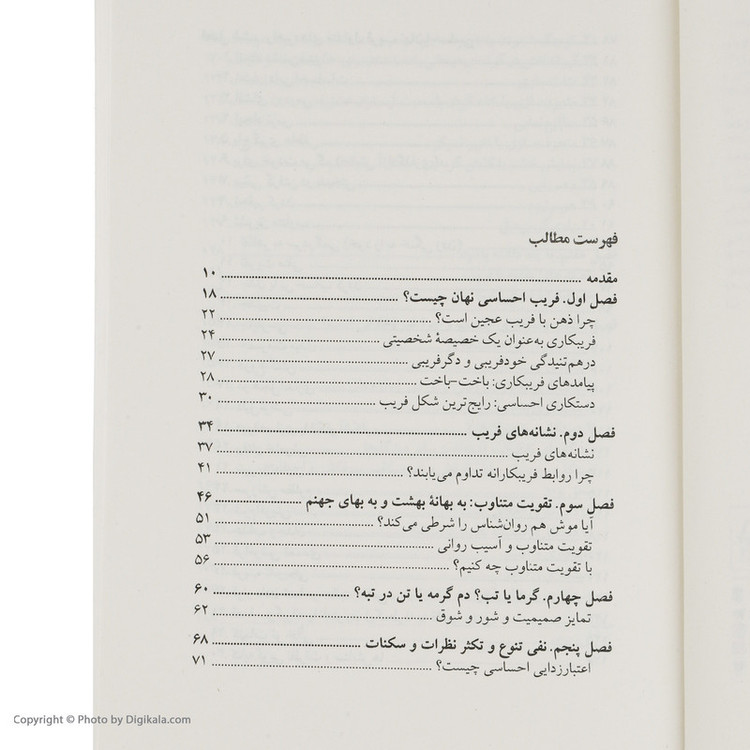 فهرست مطالب
مقدمه ........ ۱۰
فصل اول. فریب احساسی نهان چیست؟ ........ ۱۸
چرا ذهن با فریب عجین است؟ ........ ۲۲
فریبکاری به‌عنوان یک خصیصهٔ شخصیتی ........ ۲۴
درهم‌تنیدگی خودفریبی و دگرفریبی ........ ۲۷
پیامدهای فریبکاری: باخت-باخت ........ ۲۸
دستکاری احساسی: رایج‌ترین شکل فریب ........ ۳۰
فصل دوم. نشانه‌های فریب ........ ۳۴
نشانه‌های فریب ........ ۳۷
چرا روابط فریبکارانه تداوم می‌یابند؟ ........ ۴۱
فصل سوم. تقویت متناوب: به بهانهٔ بهشت و به بهای جهنم ........ ۴۶
آیا موش هم روان‌شناس را شرطی می‌کند؟ ........ ۵۱
تقویت متناوب و آسیب روانی ........ ۵۳
با تقویت متناوب چه کنیم؟ ........ ۵۶
فصل چهارم. گرما یا تب؟ دم گرمه یا تن در تبه؟ ........ ۶۰
تمایز صمیمیت و شور و شوق ........ ۶۲
فصل پنجم. نفی تنوع و تکثر نظرات و سکنات ........ ۶۸
اعتبارزدایی احساسی چیست؟ ........ ۷۱
Copyright © Photo by Digikala.com